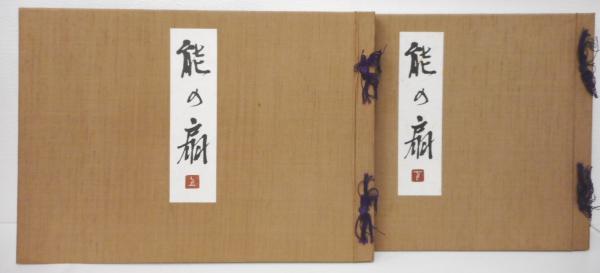 能の扇
上
能の扇
下